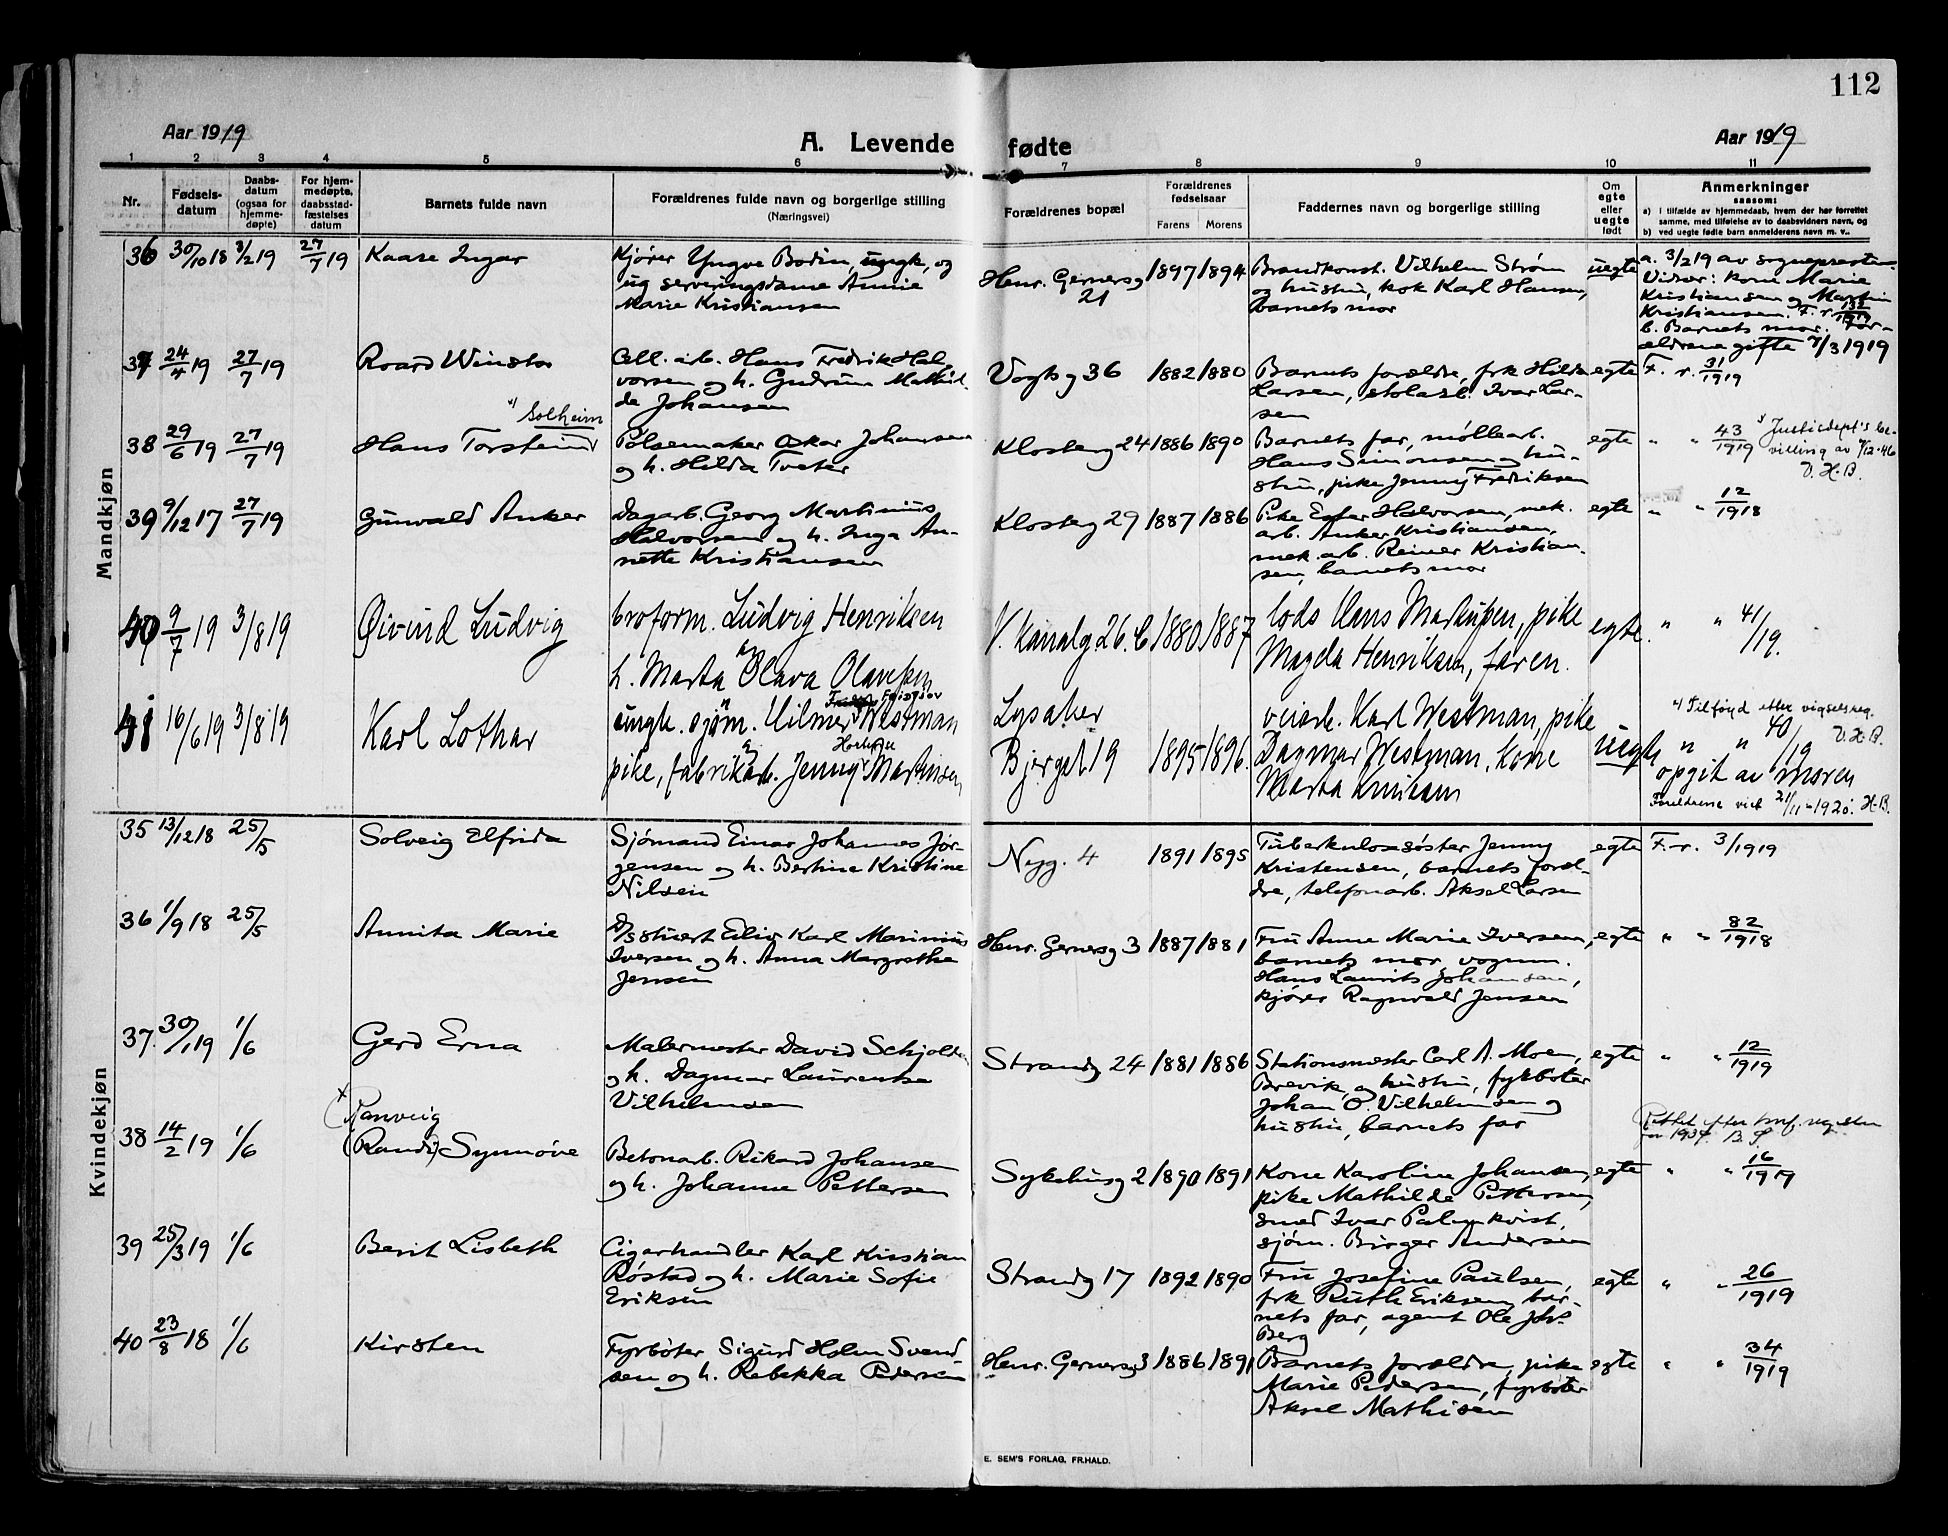 112
Aar 1919
A. Levende fødte
Aar 1919
1 2 3 4 5 6 7 8 9 10 11
Nr.
Fødsels-
datum
Daabs-
datum
(ogsaa for
hjemme-
døpte)
For hjem-
medøpte,
daabsstad-
fæstelses
datum
Barnets fulde navn
Forældrenes fulde navn og borgerlige stilling
(Næringsvei)
Forældrenes bopæl
Forældrenes
fødselsaar
Farens Morens
Faddernes navn og borgerlige stilling
Om
egte
eller
uegte
født
Anmerkninger
saasom:
a) i tilfælde av hjemmedaab, hvem der har forrettet
samme, med tilføielse av to daabsvidners navn, og
b) ved uegte fødte barn anmelderens navn m. v..
Mandkjøn
36 30/10 18 3/2 19 27/7 19 Kaare Ingar
Kjører Yngve Bodin, ungk, og
ug serveringsdame Annie
Marie Kristiansen
Henr. Gernersg
21
1897 1894
Brandkonst. Vilhelm Strøm
og hustru, kok Karl Hansen,
barnets mor
uegte
a. 3/2 19 av sognepresten
Vidner: kone Marie
Kristiansen og Martin
Kristiansen. F. r. 133/1919
b. Barnets mor. For-
ældrene gifte 7/3 1919
37 24/4 19 27/7 19 Roard Winstor
Cell. arb. Hans Fredrik Hal-
vorsen og h. Gudrun Mathil-
de Johansen
Vogts g 36 1882 1880
Barnets forældre, frk Hilda
Larsen, Ivar Lar-
sen
egte F. r. 31/1919
38 29/6 19 27/7 19 Hans Torstein
*) Solheim
Pølsemaker Oskar Johansen
og h. Hilda Tveter
Klosterg 24 1886 1890
Barnets far, møllearb.
Hans Simonsen og hu-
stru, pike Jenny Fredriksen
egte " " 43/1919
*) Justisdept's be-
villing av 7/12-46
V. H. B.
39 9/12 17 27/7 19 Gunvald Anker
Dagarb. Georg Martinius
Halvorsen og h. Inga An-
nette Kristiansen
Klosterg 29 1887 1886
Pike Ester Halvorsen, mek.
arb. Anker Kristiansen,
mek. arb. Reiner Kristian-
sen, barnets mor
egte " " 12/1918
40 9/7 19 3/8 19 Øivind Ludvig
broform. Ludvig Henriksen
h. Marta Olava Olavesen
V. Kanalg 26. b 1880 1887
lods Hans Markussen, pike
Magda Henriksen, faren.
egte. " " 41/19.
41 16/6 19 3/8 19 Karl Lothar
ungk. sjøm. Hilmer Westman
pike, fabrikarb. Jenny Martinsen
Lysaker
Bjerget 19 1895 1896.
veiarb. Karl Westman, pike
Dagmar Westman, kone
Marta Knutsen
uegte " " 40/19
opgit av moren
*) Tilføyd etter vigselsreg.
V. H. B.
Foreldrene viet 21/11-1920. H. B.
Kvindekjøn
35 13/12 18 25/5 Solveig Elfrida
Sjømand Einar Johannes Jør-
gensen og h. Bertine Kristine
Nilsen
Nyg. 4 1891 1895
Tuberkulosesøster Jenny
Kristensen, barnets foræl-
dre, telefonarb. Aksel Larsen
egte F. r. 3/1919
36 1/9 18 25/5 Annita Marie
D/S stuert Eiliv Karl Marinius
Iversen og h. Anna Margrethe
Jensen
Henr. Gernersg 3 1887 1881
Fru Anne Marie Iversen,
barnets mor, vognm.
Hans Laurits Johansen,
kjører Ragnvald Jensen
egte " " 82/1918
37 30/1 19 1/6 Gerd Erna
Malermester David Schjolte
og h. Dagmar Laurentse
Vilhelmsen
Strandg 24 1881 1886
Stationsmester Carl A. Moen,
Brevik, og hustru, fyrbøter
Johan O. Vilhelmsen og
hustru, barnets far
egte " " 12/1919
38 14/2 19 1/6 (Randi) Synnøve
x Ranveig
Betonarb. Rikard Johansen
og h. Johanne Pettersen
Sykehusg 2 1890 1891
Kone Karoline Johansen,
pike Mathilde Pettersen,
smed Ivar Palmkvist,
sjøm. Birger Andersen
egte " " 16/1919
Rettet efter
for 1934 B. S.
39 25/3 19 1/6 Berit Lisbeth
Cigarhandler Karl Kristian
Røstad og h. Marie Sofie
Eriksen
Strandg 17 1892 1890
Fru Josefine Paulsen,
frk Ruth Eriksen, bar-
nets far, agent Ole Johs.
Berg
egte " " 26/1919
40 23/8 18 1/6 Kirsten
Fyrbøter Sigurd Holm Svend-
sen og h. Rebekka Pedersen
Henr. Gernersg 3 1886 1891
Barnets forældre, pike
Marie Pedersen, fyrbøter
Aksel Mathisen
egte " " 34/1919
E. SEM'S FORLAG, FR.HALD.